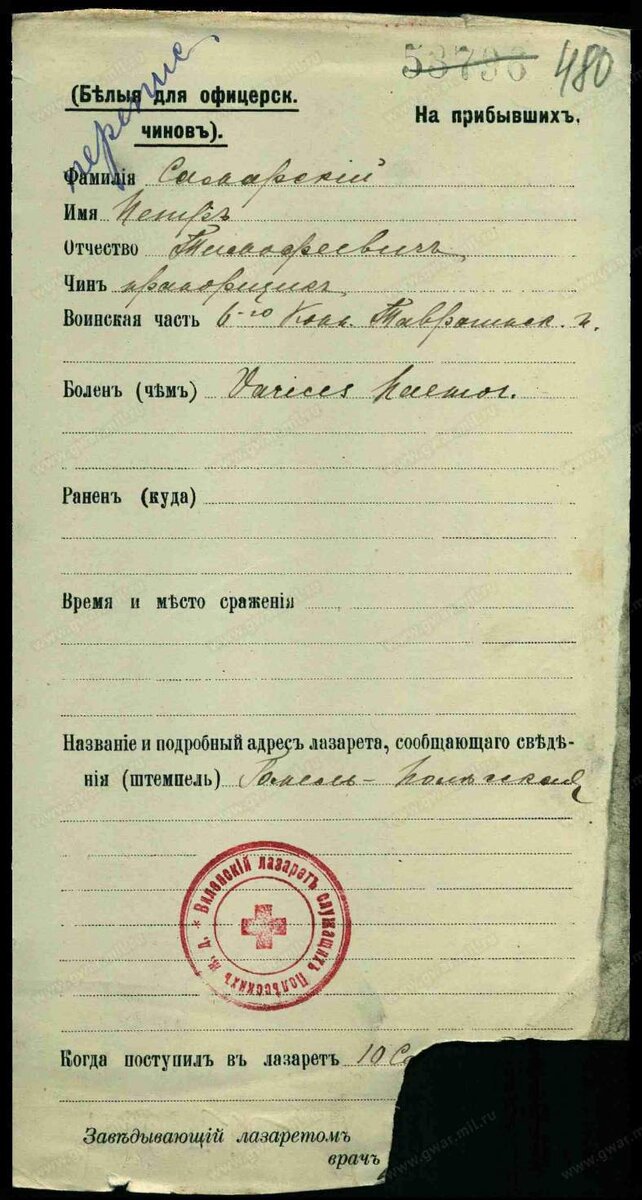 53796 480
перепис.
(Бѣлыя для офицерск.
чиновъ).
На прибывшихъ.
Фамилія Самарскій
Имя Петръ
Отчество Тимофеевичъ
Чинъ прапорщикъ
Воинская часть 6-го Таврическ. п.
Боленъ (чѣмъ) Varices haemor.
Раненъ (куда)
Время и мѣсто сраженія
Названіе и подробный адресъ лазарета, сообщающаго свѣдѣ-
нія (штемпель) Гомель - Полѣсскій
* Виленскій лазаретъ служащихъ Полѣсскихъ ж. д.
Когда поступилъ въ лазаретъ 10
Завѣдывающій лазаретомъ
врачъ
www.gwar.mil.ru